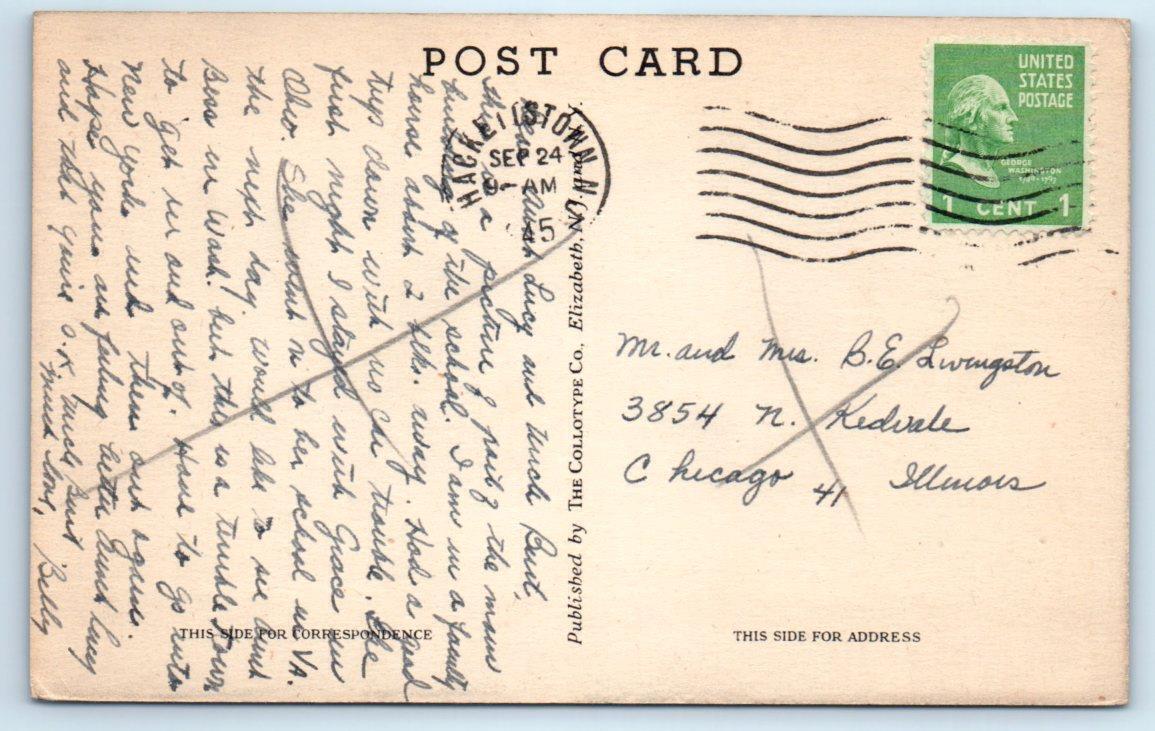 POST CARD
UNITED
STATES
POSTAGE
GEORGE
WASHINGTON
1789-1797
1 CENT 1
HACKETTSTOWN N.J.
SEP 24
9-AM
45
Dear Aunt Lucy and Uncle Burt,
This is a picture of part of the main
building of the school. I am in a faculty
house about 2 blks. away. Had a good
trip down with no car trouble. The
first night I stayed with Grace in
Ohio. She went on to her school in VA.
the next day. Would like to see Aunt
Bess in Wash. but this is a terrible town
to get in and out of. Have to go into
New York and then out again.
Hope you are feeling better Aunt Lucy
and that you're O.K. Uncle Burt
Much love,
Betty
Published by THE COLLOTYPE CO., Elizabeth, N.J. and
Mr. and Mrs. B.E. Livingston
3854 N. Kedvale
Chicago 41 Illinois
THIS SIDE FOR CORRESPONDENCE
THIS SIDE FOR ADDRESS